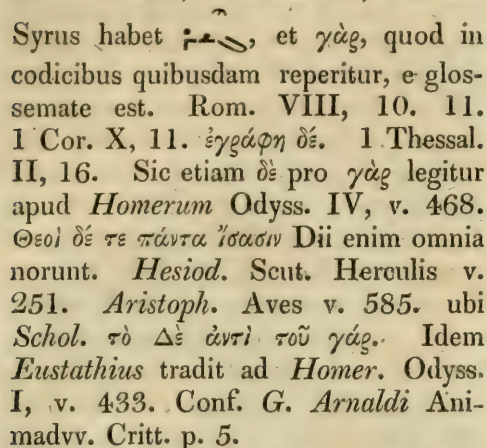 Syrus habet ܓܝܪ, et γὰρ, quod in
codicibus quibusdam reperitur, e glos-
semate est. Rom. VIII, 10. 11.
1 Cor. X, 11. ἐγράφη δέ. 1 Thessal.
II, 16. Sic etiam δὲ pro γὰρ legitur
apud Homerum Odyss. IV, v. 468.
Θεοὶ δέ τε πάντα ἴσασιν Dii enim omnia
norunt. Hesiod. Scut. Herculis v.
251. Aristoph. Aves v. 585. ubi
Schol. τὸ Δὲ ἀντὶ τοῦ γάρ. Idem
Eustathius tradit ad Homer. Odyss.
I, v. 433. Conf. G. Arnaldi Ani-
madvv. Critt. p. 5.